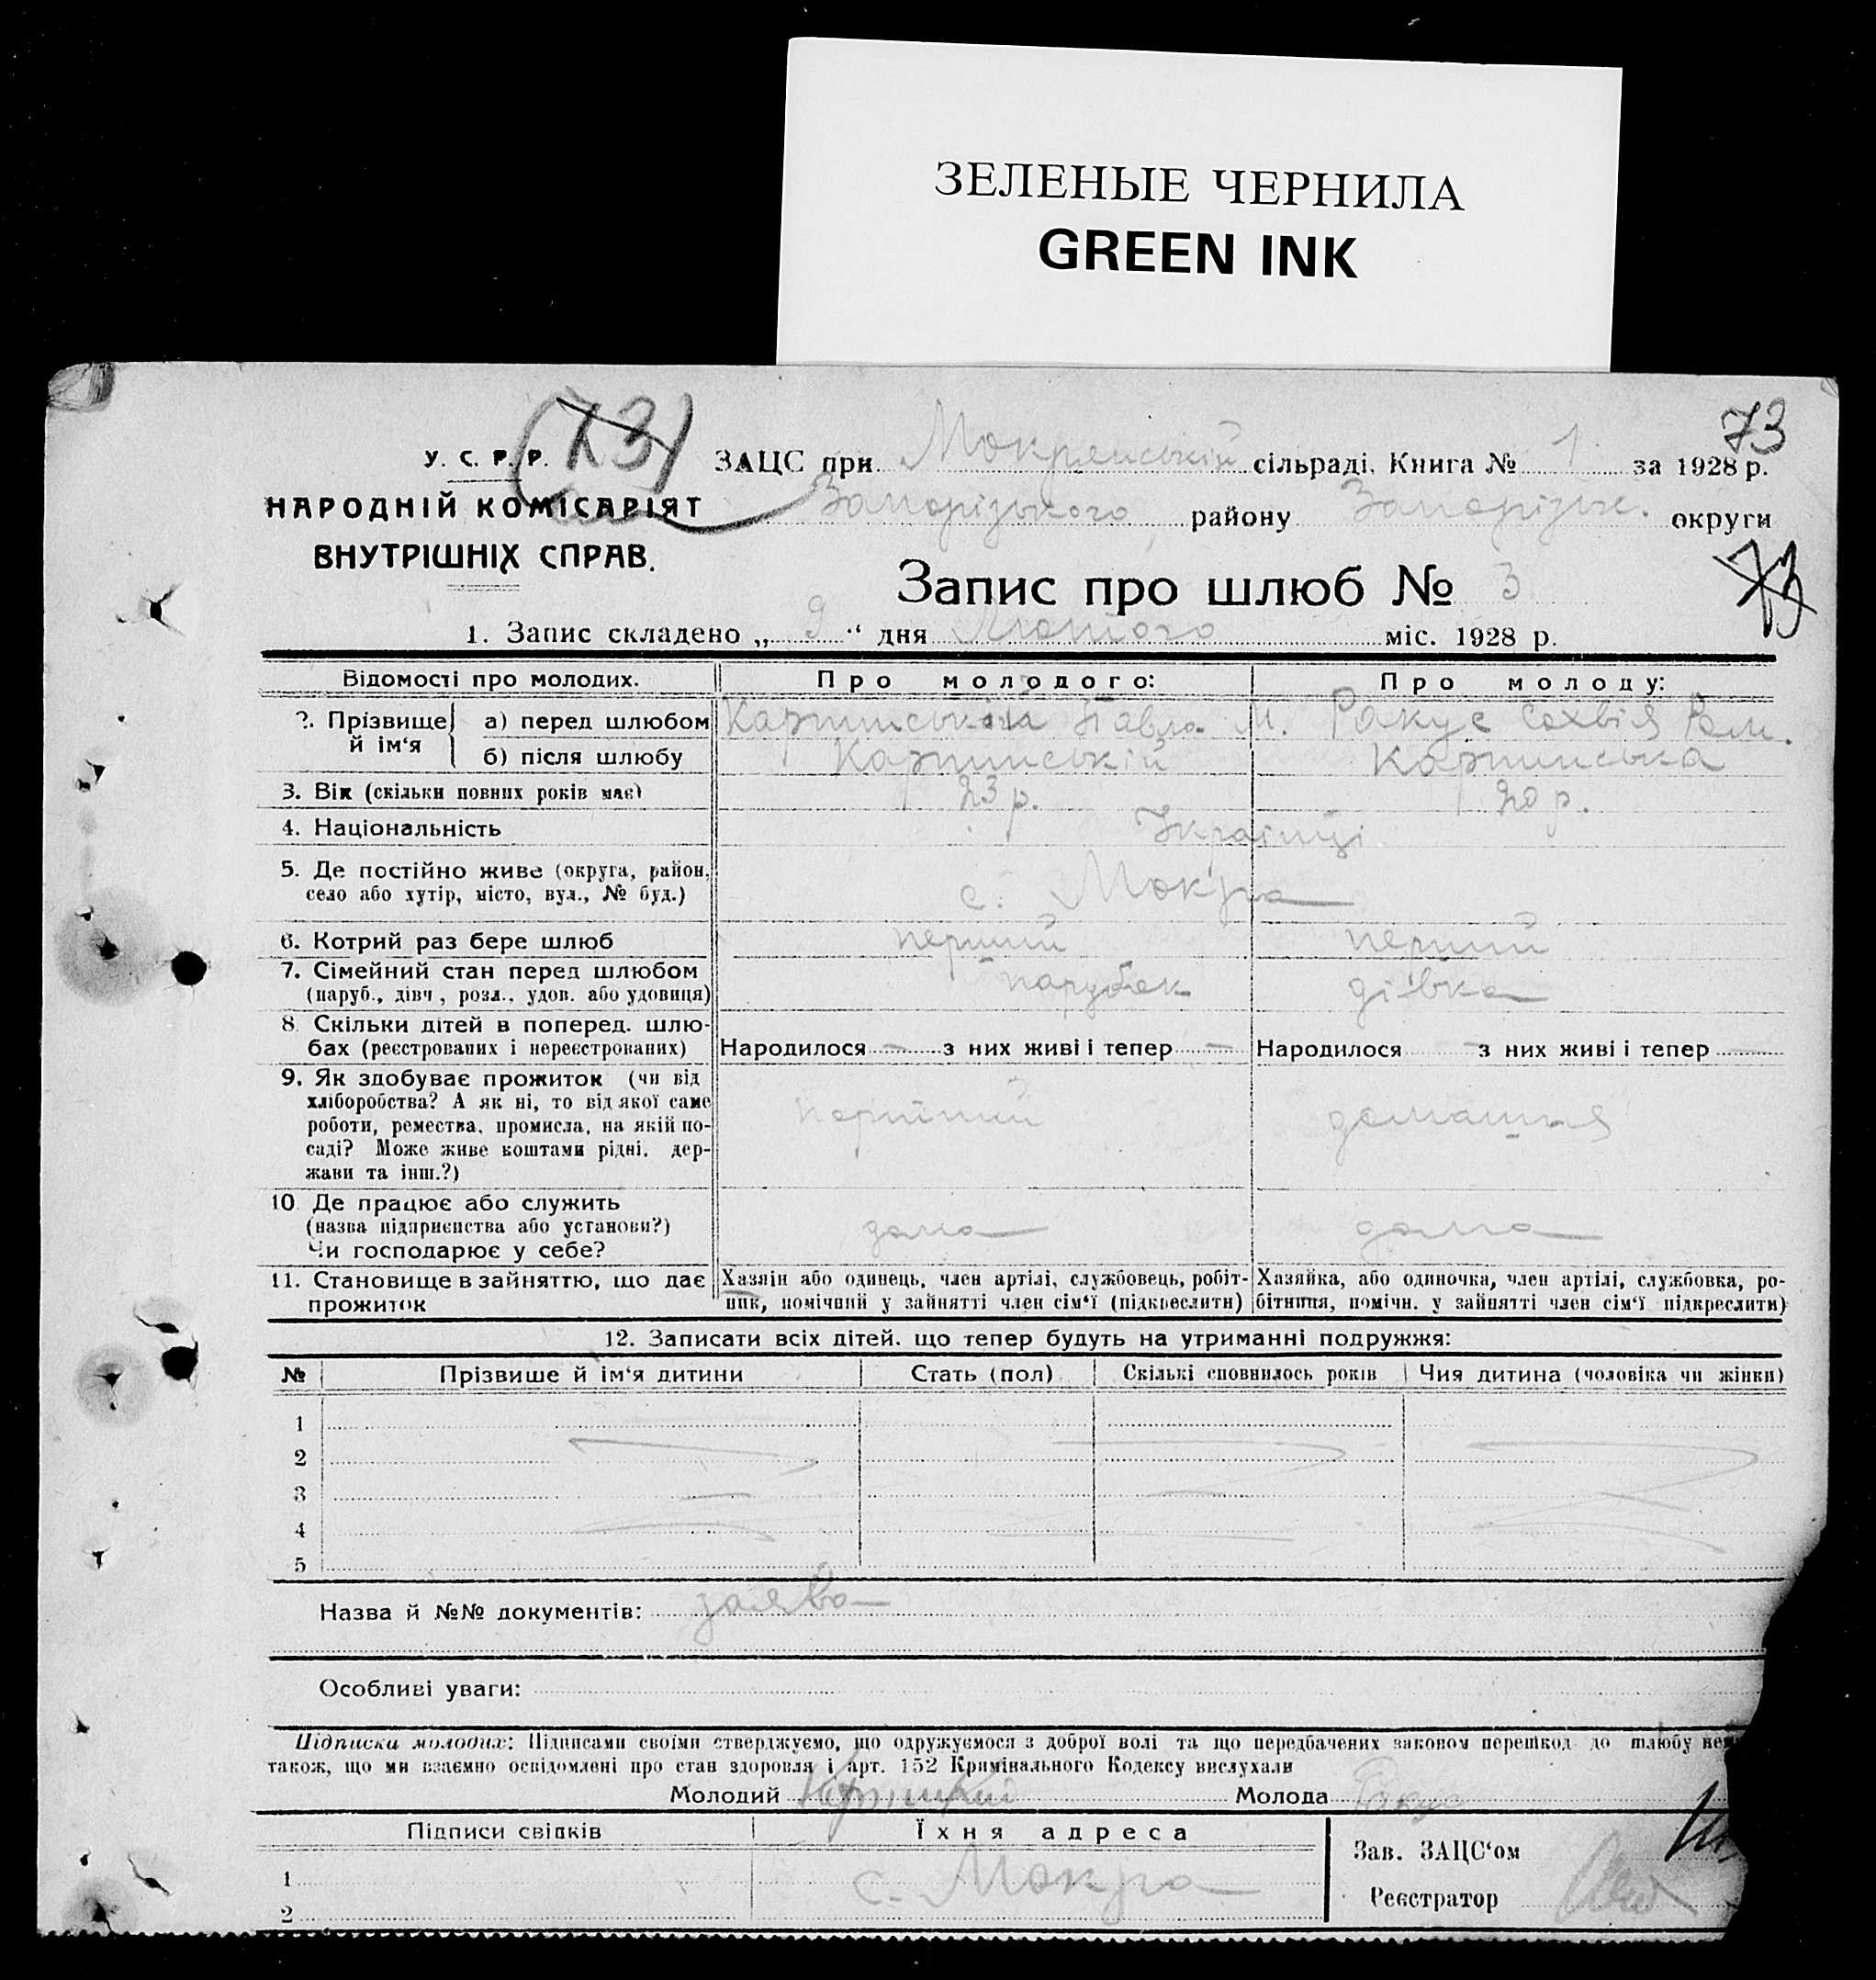 ЗЕЛЕНЫЕ ЧЕРНИЛА
GREEN INK
(73)
73
У. С. Р. Р.
НАРОДНІЙ КОМІСАРІЯТ
ВНУТРІШНІХ СПРАВ.
ЗАЦС при Мокрянській сільраді. Книга № 1 за 1928 р.
Запорізького району Запорізьк. округи
73
Запис про шлюб № 3
1. Запис складено „ 9 “ дня Лютого міс. 1928 р.
Відомості про молодих. Про молодого: Про молоду:
2. Прізвище й ім‘я
а) перед шлюбом Павло М. Ракус Сохвія Ром.
б) після шлюбу Карпинській Карпинська
3. Вік (скільки повних років має) 23 р. 20 р.
4. Національність Українці
5. Де постійно живе (округа, район, село або хутір, місто, вул., № буд.) с. Мокра
6. Котрий раз бере шлюб перший перший
7. Сімейний стан перед шлюбом (паруб., дівч., розл., удов. або удовиця) парубок дівка
8. Скільки дітей в поперед. шлюбах (реєстрованих і нереєстрованих)
Народилося — з них живі і тепер — Народилося — з них живі і тепер —
9. Як здобуває прожиток (чи від
хліборобства? А як ні, то від якої саме
роботи, ремества, промисла, на якій по-
саді? Може живе коштами рідні, дер-
жави та інш.?)
домашня
10. Де працює або служить
(назва підприємства або установи?)
Чи господарює у себе?
дома дома
11. Становище в зайняттю, що дає
прожиток
Хазяїн або одинець, член артілі, службовець, робіт-
ник, помічний у зайнятті член сім‘ї (підкреслити)
Хазяйка, або одиночка, член артілі, службовка, ро-
бітниця, помічн. у зайнятті член сім‘ї підкреслити)
12. Записати всіх дітей, що тепер будуть на утриманні подружжя:
№ Прізвише й ім‘я дитини Стать (пол) Скількі сповнилось років Чия дитина (чоловіка чи жінки)
1
2
3
4
5
Назва й №№ документів: заява
Особливі уваги:
Підписка молодих: Підписами своїми стверджуємо, що одружуємося з доброї волі та що передбачених законом перешкод до шлюбу
також, що ми взаємно освідомлені про стан здоровля і арт. 152 Кримінального Кодексу вислухали
Молодий Молода Ракус
Підписи свідків Їхня адреса
1
2
с. Мокра
Зав. ЗАЦС‘ом
Реєстратор